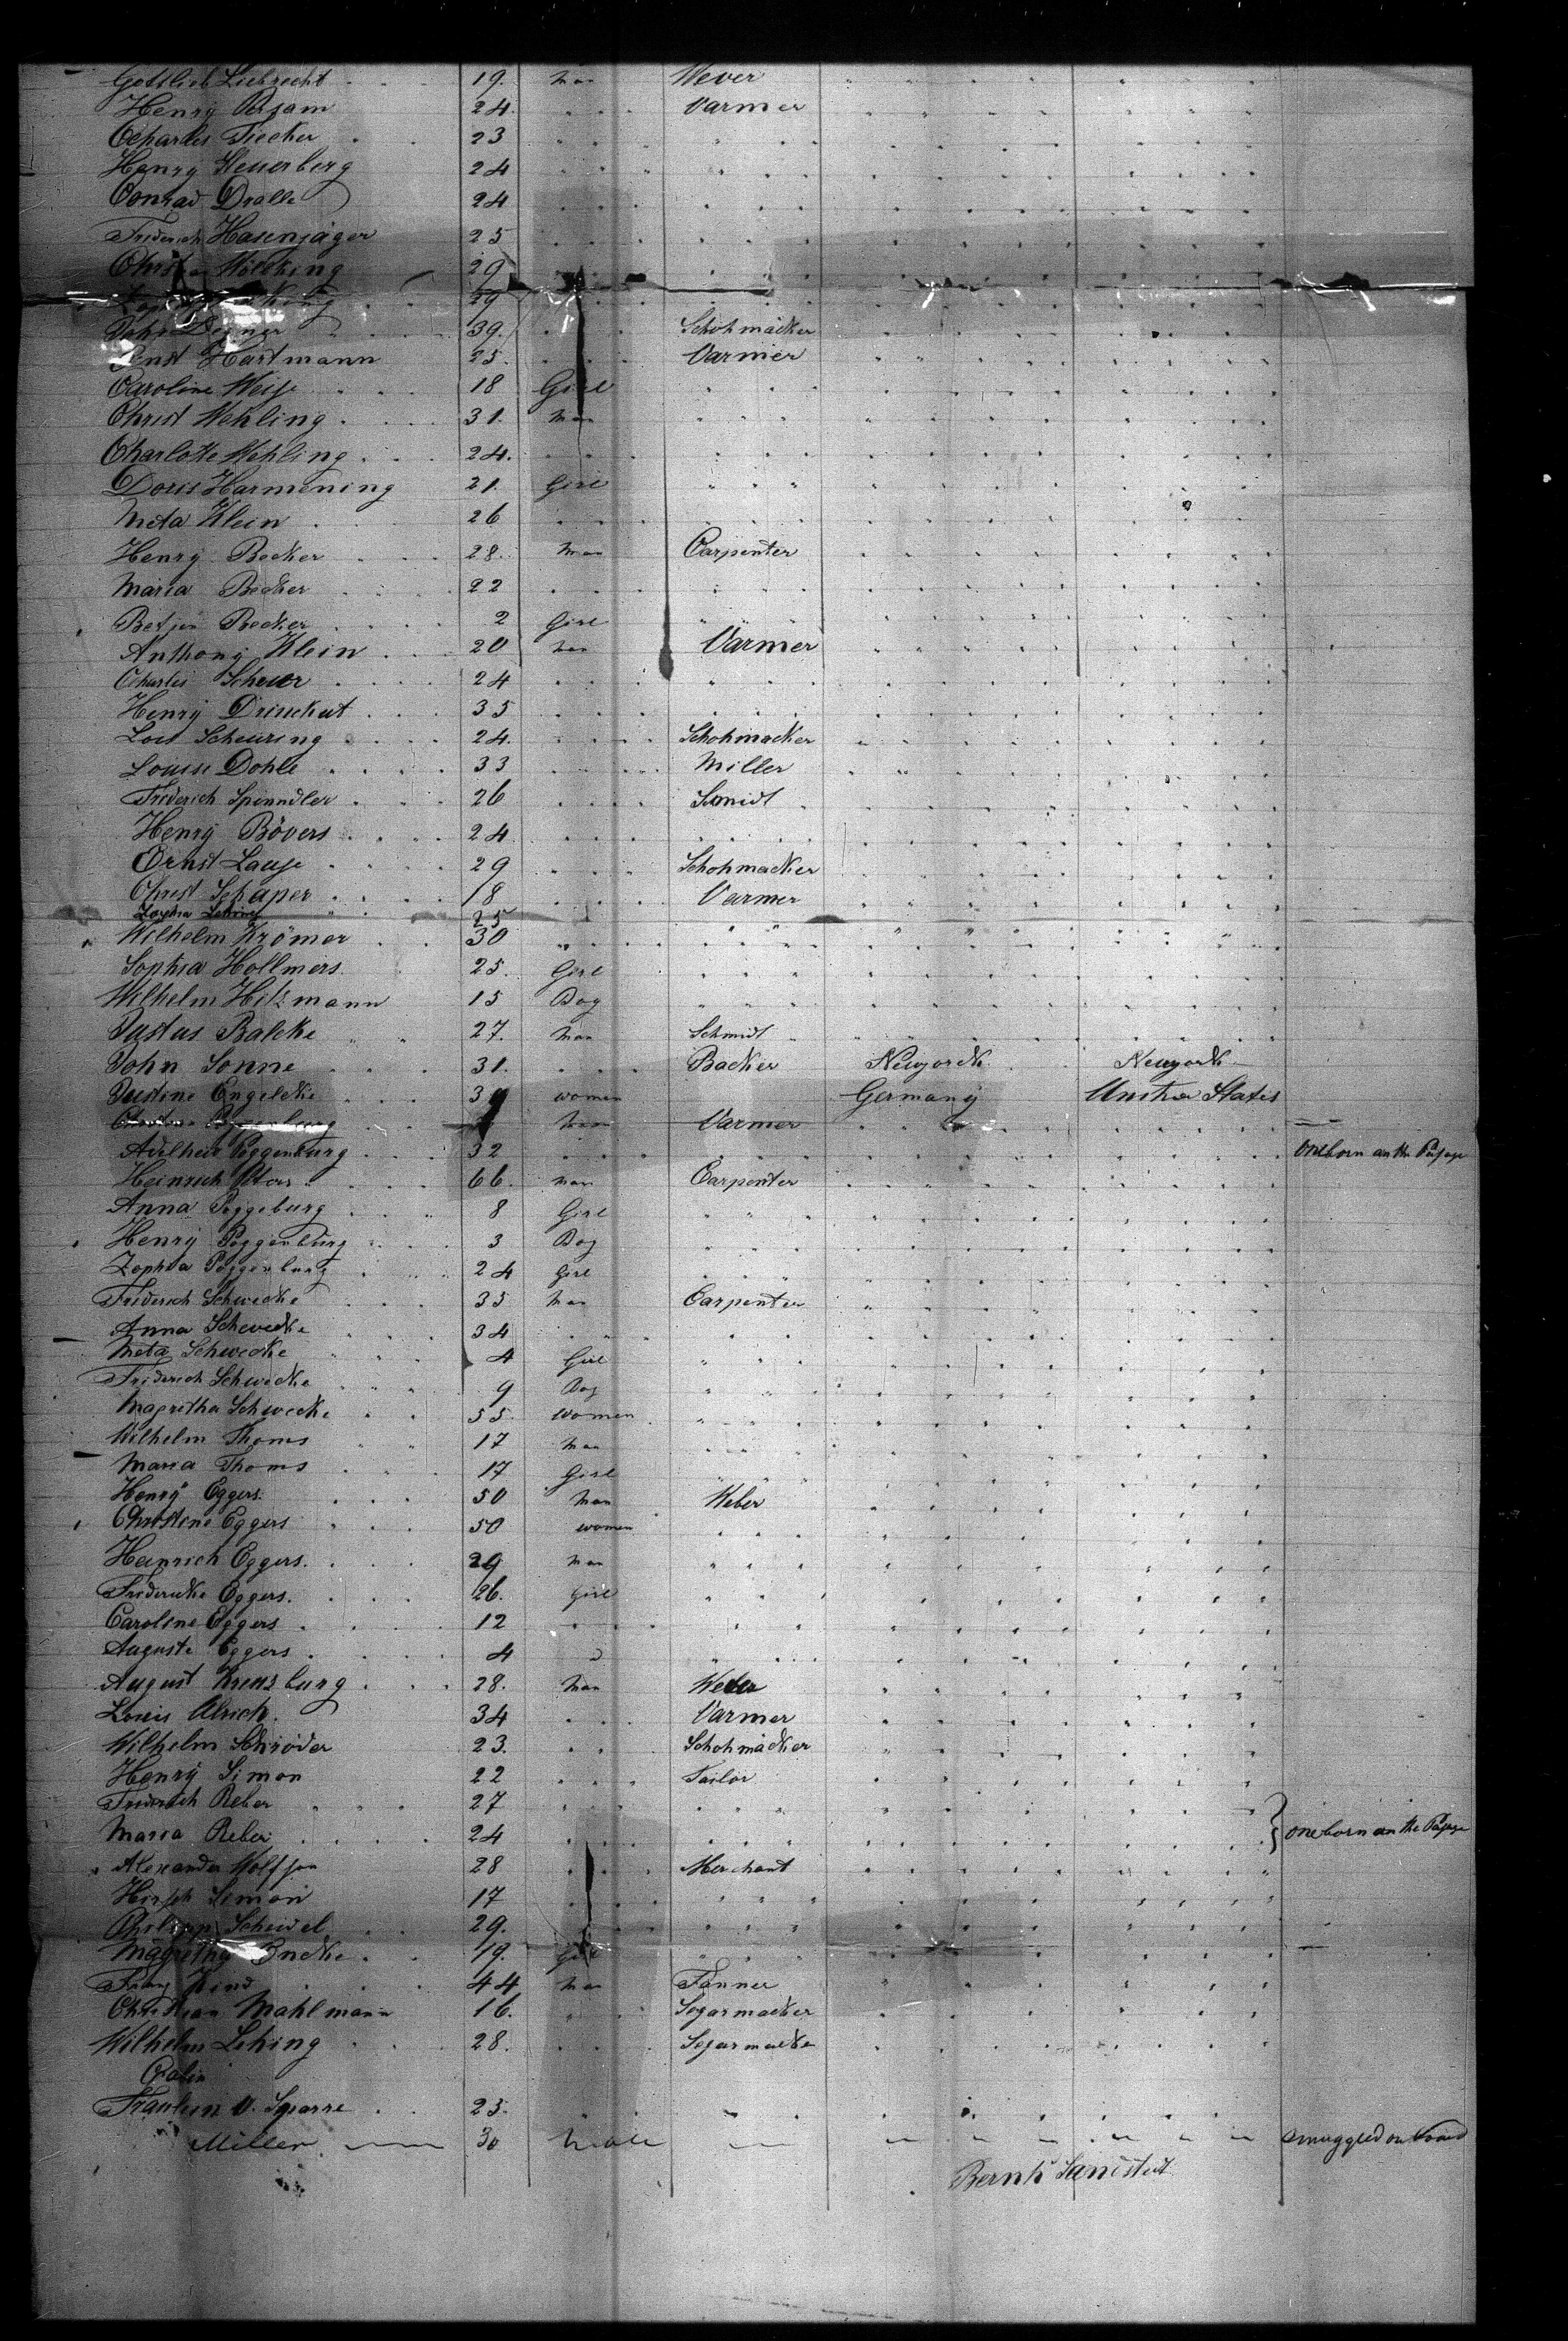 Gottlieb Liebrecht 19. Man Wever
Henry Persam 24. Varmer
Charles Tiecker 23
Henry Heuerberg 24
Conrad Dralle 24
Friderich Hasenjäger 25
Christ Wilcking 29
29
John Degner 39. Schohmäcker
Ernst Hartmann 25. Varmer
Caroline Weise 18 Girl
Christ Wehling 31. Man
Charlotte Wehling 24.
Doris Harmening 21. Girl
Meta Klein 26
Henry Becker 28. Man Carpenter
Maria Becker 22
Betjen Becker 2 Girl
Anthony Klein 20 Man Varmer
Charles Scheer 24
Henry Drinckut 35
Loui Scheuring 24. Schohmacker
Louise Dohle 33 Miller
Friderich Spinndler 26 Smidt
Henry Bövers 24
Ernst Lause 29 Schohmacker
Christ Schaper 18 Varmer
25
Wilhelm Krömer 30
Sophia Hollmers 25. Girl
Wilhelm Hitzmann 15 Boy
Justus Balcke 27. Man Schmidt
John Sonne 31. Backer Newyorck Newyork
Justine Engelcke 39 women Germany United States
Man Varmer
Adelheid Poggenburg 32 One born on the Pasage
Heinrich 66. Man Carpenter
Anna Poggeburg 8 Girl
Henry Poggenburg 3 Boy
Zophia Poggenburg 24 Girl
Friderich Schwecke 35 Man Carpenter
Anna Schwecke 34
Meta Schwecke 4 Girl
Friderich Schwecke 9 Boy
Magretha Schwecke 55. women
Wilhelm Thoms 17 Man
Maria Thoms 17 Girl
Henry Eggers 50 Man Weber
Christine Eggers 50 women
Heinrich Eggers. 29 Man
Fridericke Eggers. 26. Girl
Caroline Eggers 12
Auguste Eggers 4
August Kreusburg 28. Man Weber
Louis Ulrich. 34 Varmer
Wilhelm Schröder 23. Schohmäcker
Henry Simon 22 Tailor
Friderich Reber 27
Maria Reber 24 One born on the Pasage
Alexander Wolfson 28 Merchant
Hirsch Simon 17
Philipp Schewel 29.
Magretha Encke 19. Girl
Franz Kind 44 Man Tanner
Christian Mahlmann 16. Segarmacker
Wilhelm Leking 28. Segarmacke
Cabin
Fraulein v. Sparre 25.
Miller 30 Male smuggled on board
Bernh Sandstedt